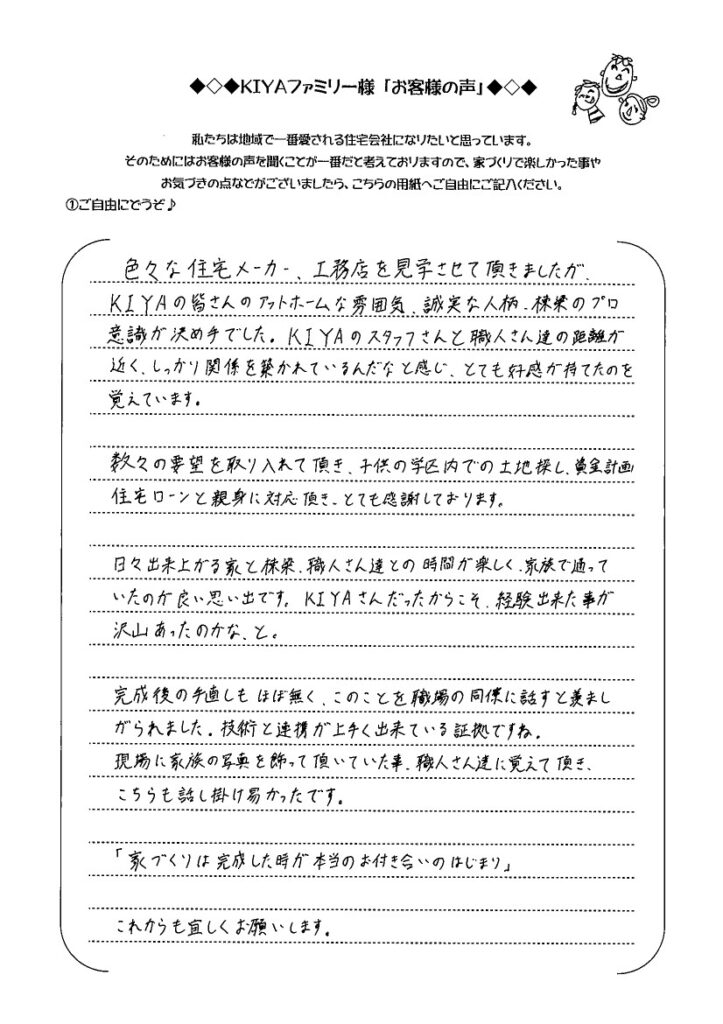 ◆◇◆KIYAファミリー様「お客様の声」◆◇◆
私たちは地域で一番愛される住宅会社になりたいと思っています。
そのためにはお客様の声を聞くことが一番だと考えておりますので、家づくりで楽しかった事や
お気づきの点などがございましたら、こちらの用紙へご自由にご記入ください。
①ご自由にどうぞ♪
色々な住宅メーカー、工務店を見学させて頂きましたが、
KIYAの皆さんのアットホームな雰囲気、誠実な人柄、棟梁のプロ
意識が決め手でした。KIYAのスタッフさんと職人さん達の距離が
近く、しっかり関係を築かれているんだなと感じ、とても好感が持てたのを
覚えています。
数々の要望を取り入れて頂き、子供の学区内での土地探し、資金計画
住宅ローンと親身に対応頂き、とても感謝しております。
日々出来上がる家と棟梁、職人さん達との時間が楽しく、家族で通って
いたのが良い思い出です。KIYAさんだったからこそ、経験出来た事が
沢山あったのかな、と。
完成後の手直しもほぼ無く、このことを職場の同僚に話すと羨まし
がられました。技術と連携が上手く出来ている証拠ですね。
現場に家族の写真を飾って頂いていた事、職人さん達に覚えて頂き、
こちらも話し掛け易かったです。
「家づくりは完成した時が本当のお付き合いのはじまり」
これからも宜しくお願いします。